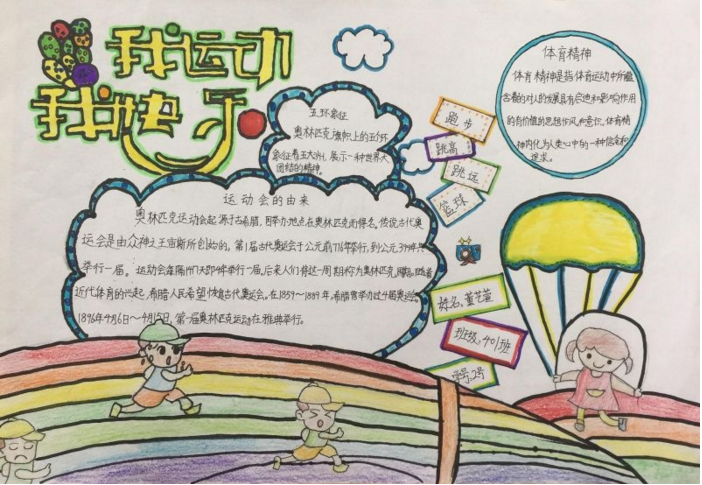 我运动
我快乐
五环象征
奥林匹克旗帜上的五个环
象征着五大洲,展示一种世界大
团结的精神。
运动会的由来
奥林匹克运动会起源于古希腊,因举办地点在奥林匹克而得名。传说古代奥
运会是由众神之王宙斯所创始的。第1届古代奥运会于公元前776年举行,到公元394年共
举行一届。运动会每隔1417天即4年举行一届,后来人们将这一周期称为奥林匹克
近代体育的兴起,希腊人民希望恢复古代奥运会。在1859~1889年,希腊曾举办过4届奥运会。
1896年4月6日~4月15日,第一届奥林匹克运动在雅典举行。
跑步
跳高
跳远
篮球
体育精神
体育精神是指体育运动中所蕴
含着的对人的发展具有启迪和影响作用
的有价值的思想作风和意识。体育精
神内化为人类心中的一种信念和
追求。
姓名:董艺萱
班级:401班
学号:2号